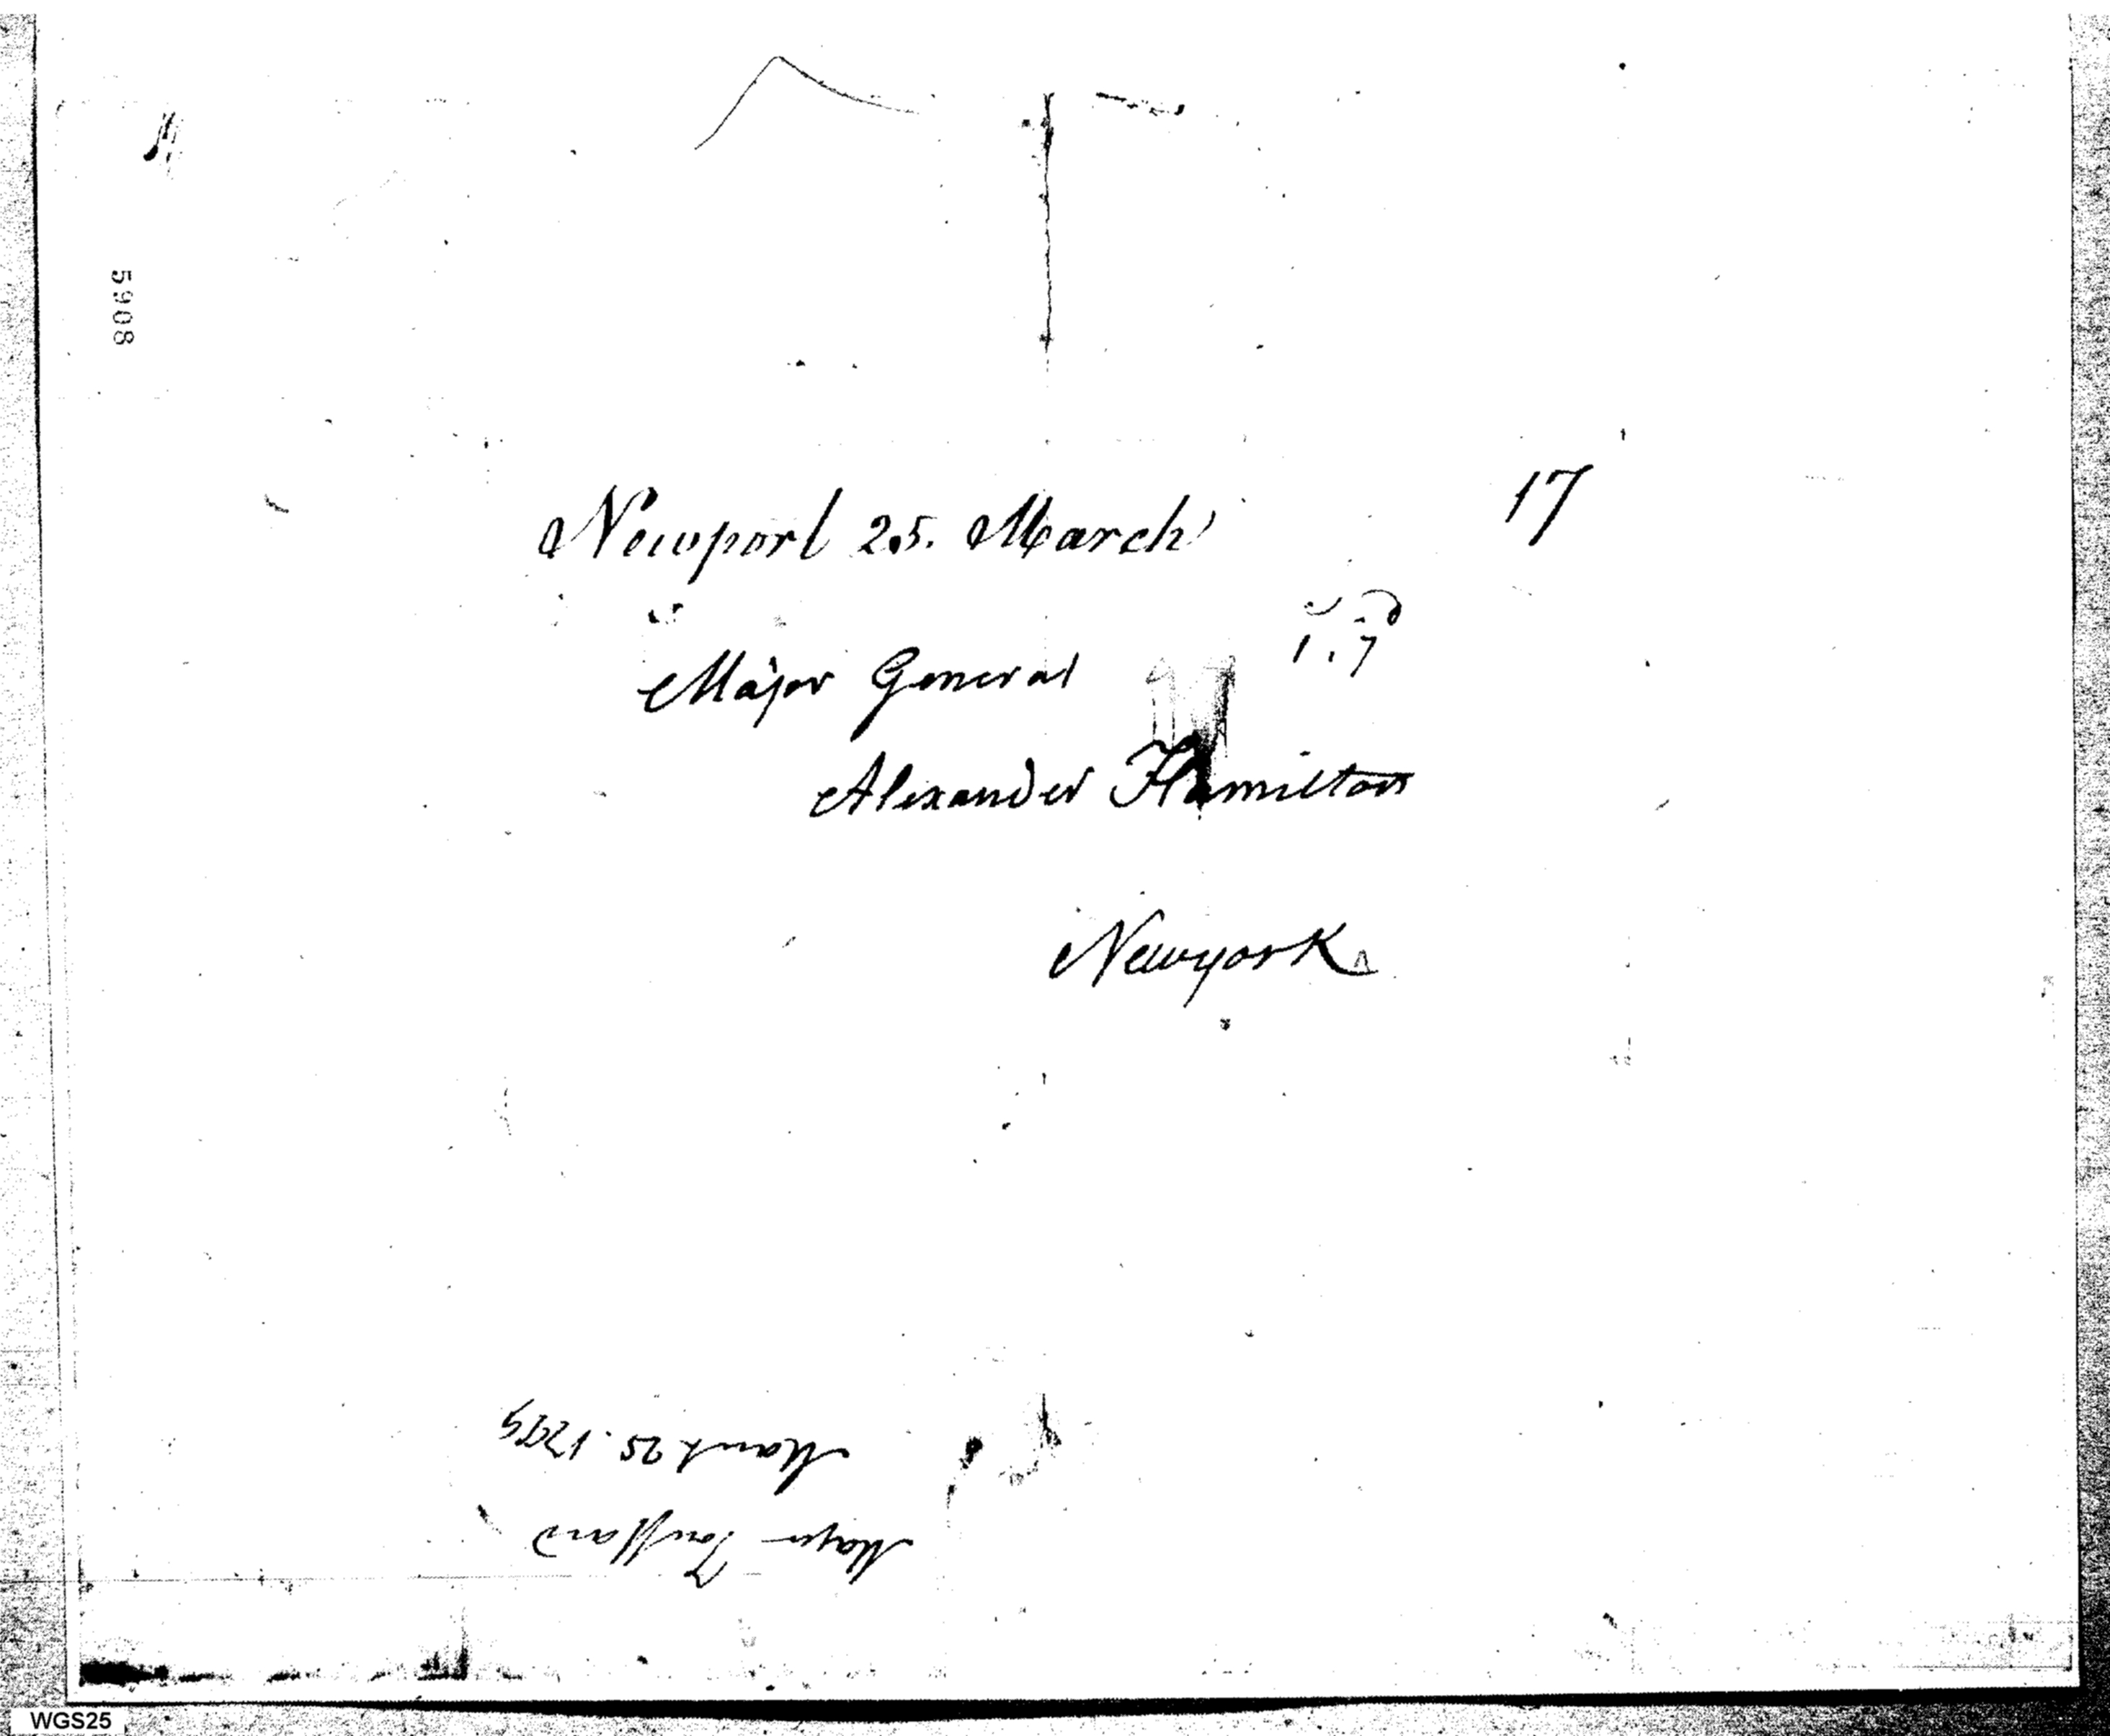 5908
Newport 25. March
17
Major General
Alexander Hamilton
Newyork
Major Toussard
March 25. 1799
WGS25